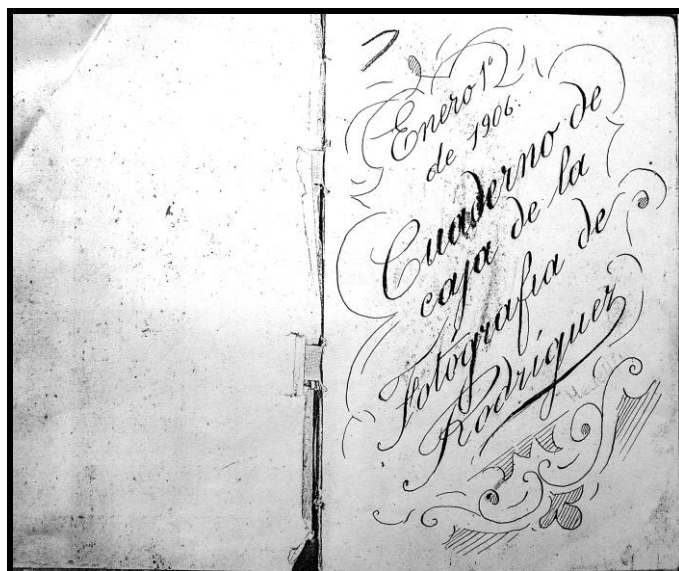 Enero 1º
de 1906.
Cuaderno de
caja de la
Fotógrafia de
Rodríguez